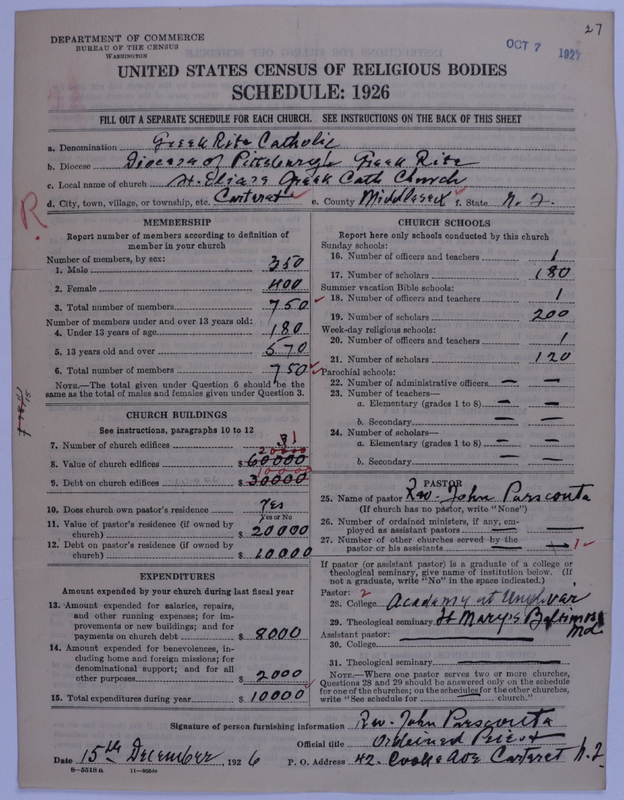 27
OCT 7 1927
DEPARTMENT OF COMMERCE
BUREAU OF THE CENSUS
WASHINGTON
UNITED STATES CENSUS OF RELIGIOUS BODIES
SCHEDULE: 1926
FILL OUT A SEPARATE SCHEDULE FOR EACH CHURCH. SEE INSTRUCTIONS ON THE BACK OF THIS SHEET
a. Denomination Greek Rite Catholic
b. Diocese Diocese of Pittsburgh Greek Rite
c. Local name of church St. Elias Greek Cath Church
d. City, town, village, or township, etc. Carteret e. County Middlesex f. State N. J.
R
MEMBERSHIP
Report number of members according to definition of
member in your church
Number of members, by sex:
1. Male 350
2. Female 400
3. Total number of members 750
Number of members under and over 13 years old:
4. Under 13 years of age 180
5. 13 years old and over 570
6. Total number of members 750
NOTE.—The total given under Question 6 should be the
same as the total of males and females given under Question 3.
CHURCH BUILDINGS
See instructions, paragraphs 10 to 12
7. Number of church edifices 1
20000
8. Value of church edifices $ 60000
10000
9. Debt on church edifices $ 30000
10. Does church own pastor's residence? Yes
Yes or No
11. Value of pastor's residence (if owned by
church) $ 20000
12. Debt on pastor's residence (if owned by
church) $ 10000
EXPENDITURES
Amount expended by your church during last fiscal year
13. Amount expended for salaries, repairs,
and other running expenses; for im-
provements or new buildings; and for
payments on church debt $ 8000
14. Amount expended for benevolences, in-
cluding home and foreign missions; for
denominational support; and for all
other purposes $ 2000
15. Total expenditures during year $ 10000
CHURCH SCHOOLS
Report here only schools conducted by this church
Sunday schools:
16. Number of officers and teachers 1
17. Number of scholars 180
Summer vacation Bible schools:
18. Number of officers and teachers 1
19. Number of scholars 200
Week-day religious schools:
20. Number of officers and teachers 1
21. Number of scholars 120
Parochial schools:
22. Number of administrative officers — —
23. Number of teachers—
a. Elementary (grades 1 to 8) — —
b. Secondary — —
24. Number of scholars—
a. Elementary (grades 1 to 8) — —
b. Secondary — —
PASTOR
25. Name of pastor Rev. John Parscouta
(If church has no pastor, write "None")
26. Number of ordained ministers, if any, em-
ployed as assistant pastors — —
27. Number of other churches served by the
pastor or his assistants — 1
If pastor (or assistant pastor) is a graduate of a college or
theological seminary, give name of institution below. (If
not a graduate, write "No" in the space indicated.)
Pastor: 2
28. College Academy at Ungvar
29. Theological seminary St Mary's Baltimore
Md.
Assistant pastor: —
30. College —
31. Theological seminary —
NOTE.—Where one pastor serves two or more churches,
Questions 28 and 29 should be answered only on the schedule
for one of the churches; on the schedules for the other churches,
write "See schedule for church."
Signature of person furnishing information Rev. John Parscouta
Official title Ordained Priest
Date 15th December, 1926 P. O. Address 42. Cooke Ave Carteret N. J.
8—5518 a